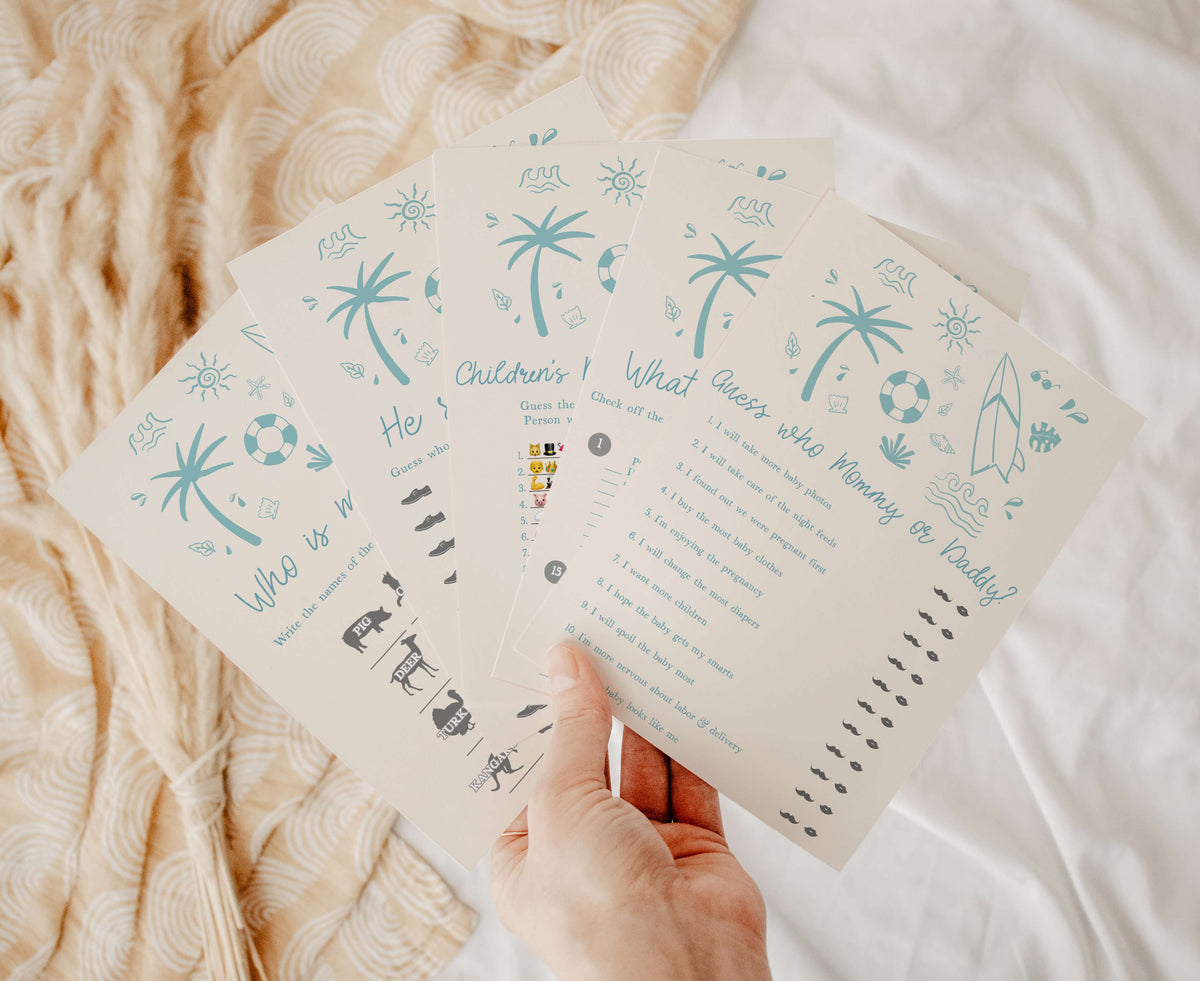 Who is
Write the names of the
PIG
DEER
TURK
KANGA
He
Guess who
Children's
Guess the
Person w
1.
2.
3.
4.
5.
6.
What
Check off the
1
15
Guess who Mommy or Daddy?
1. I will take more baby photos
2. I will take care of the night feeds
3. I found out we were pregnant first
4. I buy the most baby clothes
5. I'm enjoying the pregnancy
6. I will change the most diapers
7. I want more children
8. I hope the baby gets my smarts
9. I will spoil the baby most
10. I'm more nervous about labor & delivery
baby looks like me